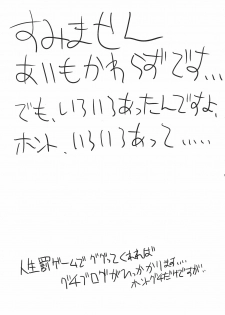 すみません
あいもかわらずです...
でも、いろいろあったんですよ、
ホント、いろいろあって.....
人生罰ゲームでググってくれれば
グチブログがひっかかります....
ホントグチだけですが..